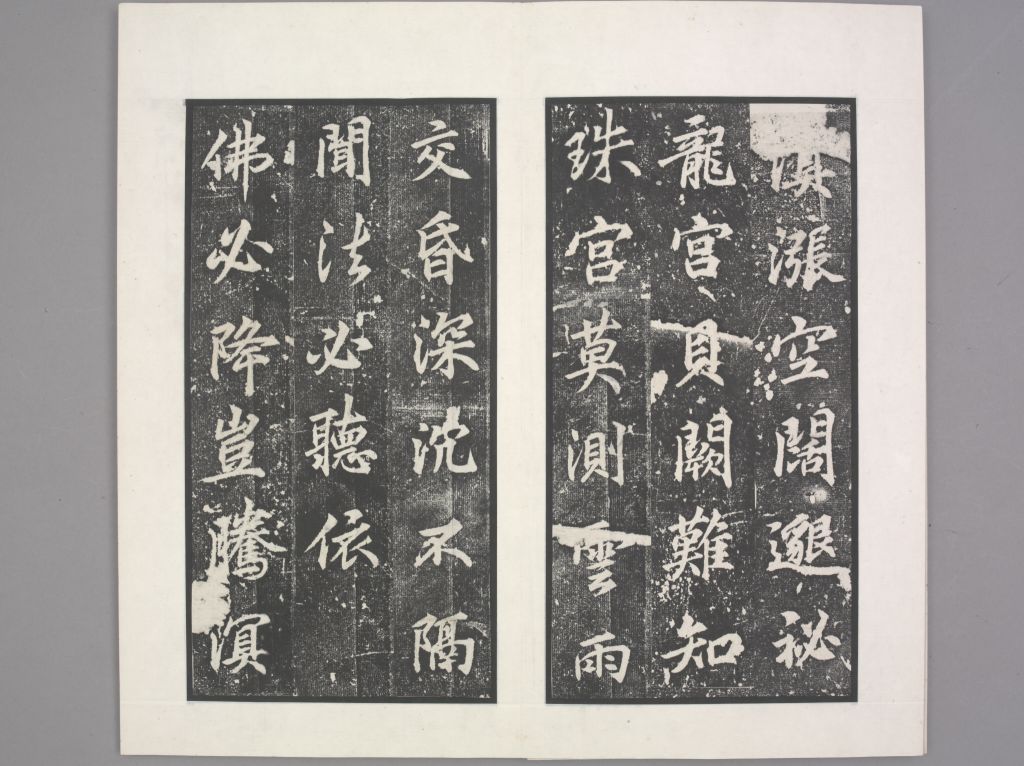 溟漲空闊邈祕
龍宮貝闕難知
珠宮莫測雲雨
交昏深沈不隔
聞法必聽依
佛必降豈騰溟